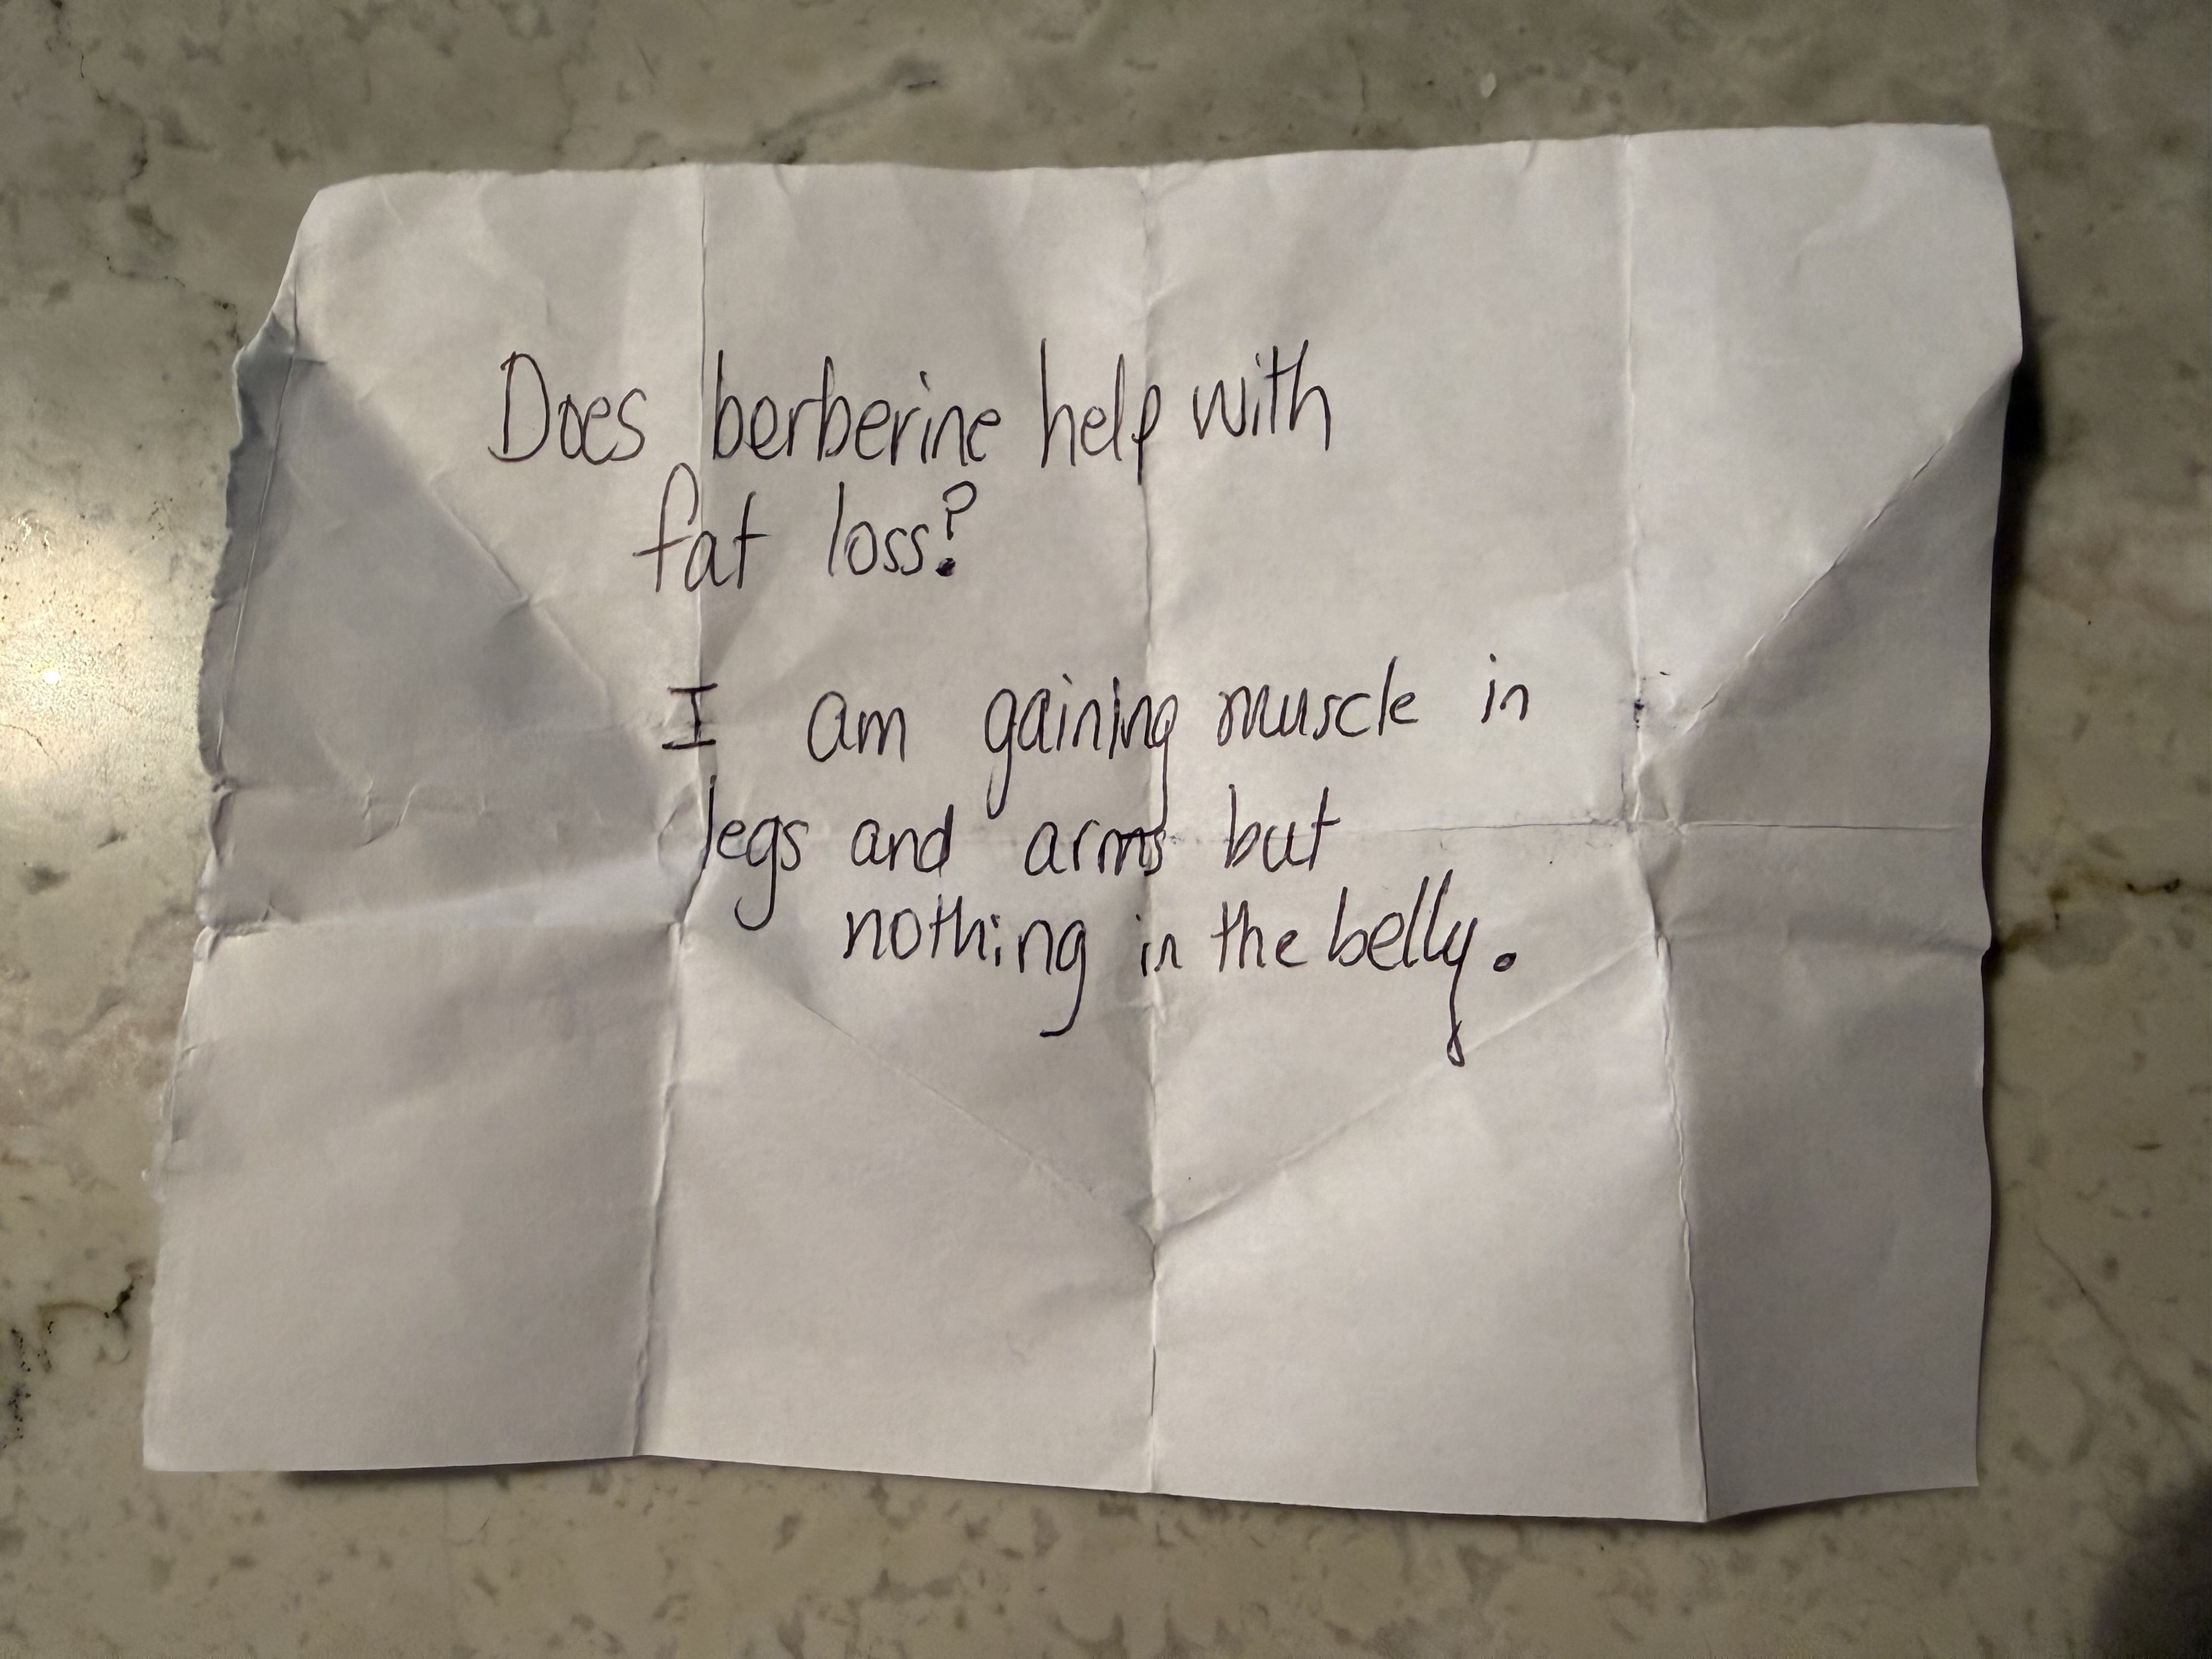 Does berberine help with
fat loss?
I am gaining muscle in
legs and arms but
nothing in the belly.